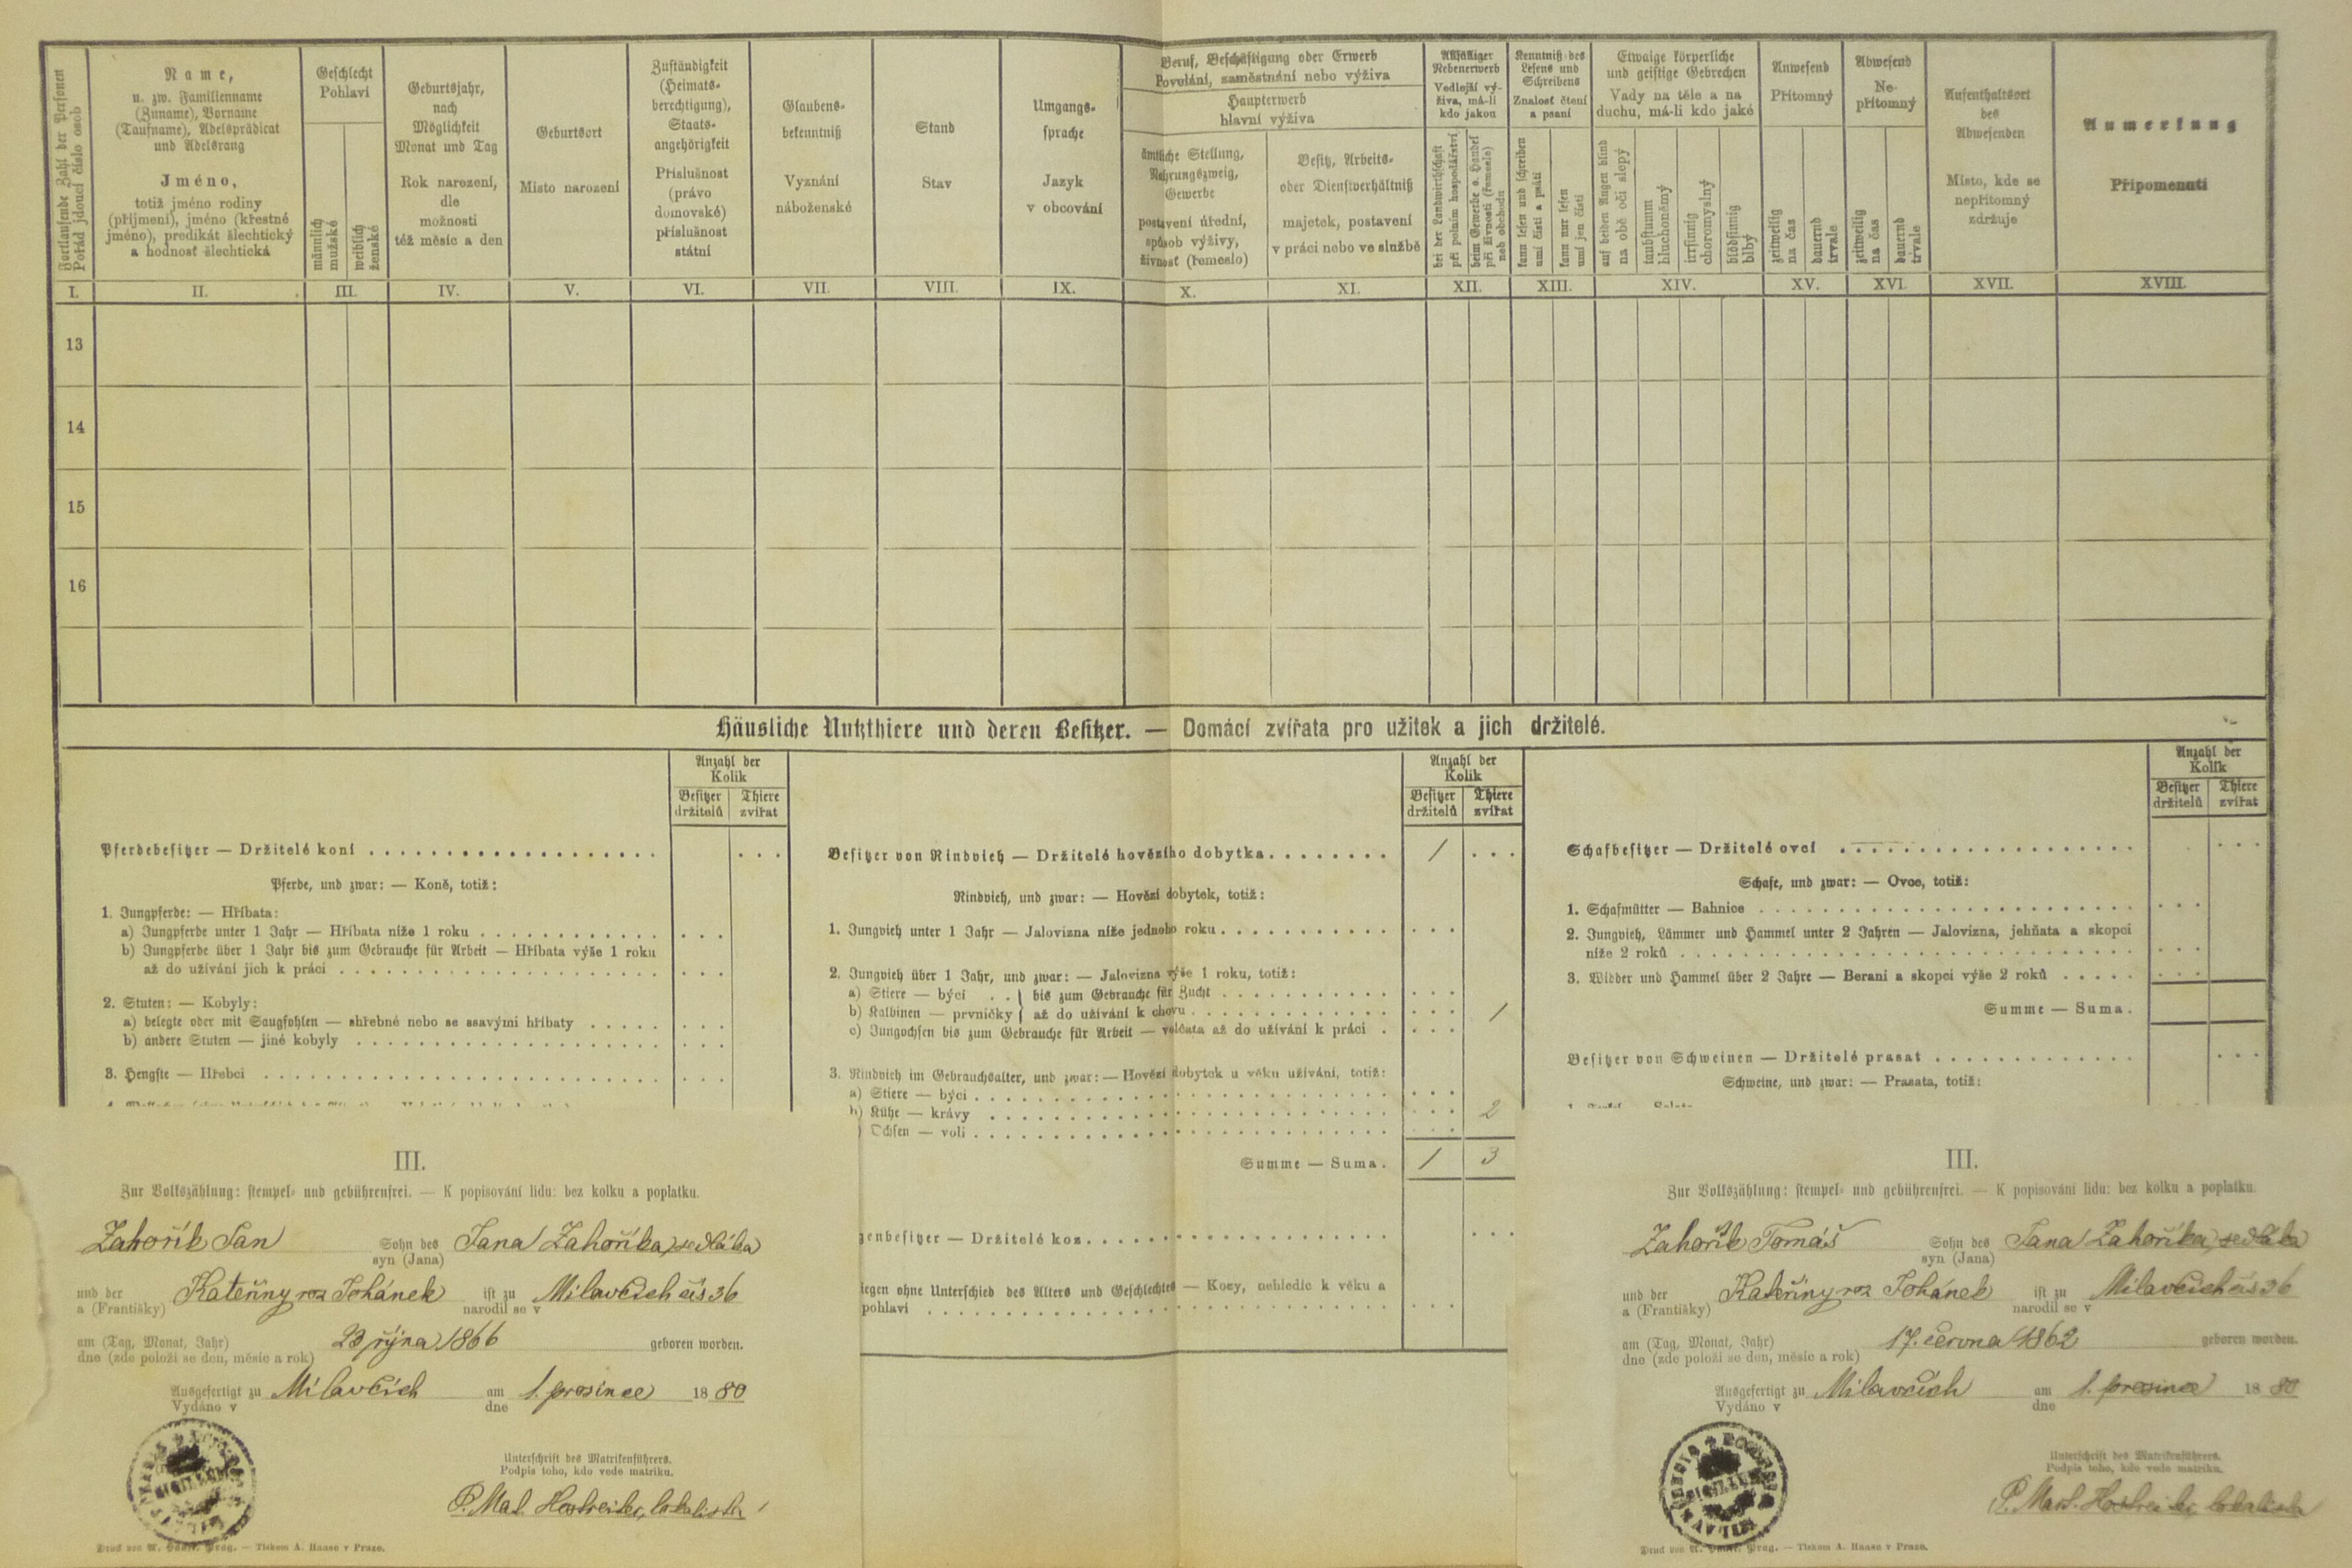 Fortlaufende Zahl der Personen
Pořád jdoucí číslo osob
Name,
u. zw. Familienname
(Zuname), Vorname
(Taufname), Adelsprädicat
und Adelsrang
Jméno,
totiž jméno rodiny
(příjmení), jméno (křestné
jméno), predikát šlechtický
a hodnosť šlechtická
Geschlecht
Pohlaví
männlich
mužské
weiblich
ženské
Geburtsjahr,
nach
Möglichkeit
Monat und Tag
Rok narození,
dle
možnosti
též měsíc a den
Geburtsort
Místo narození
Zuständigkeit
(Heimats-
berechtigung),
Staats-
angehörigkeit
Příslušnost
(právo
domovské)
příslušnost
státní
Glaubens-
bekenntniß
Vyznání
náboženské
Stand
Stav
Umgangs-
sprache
Jazyk
v obcování
Beruf, Beschäftigung oder Erwerb
Povolání, zaměstnání nebo výživa
Haupterwerb
hlavní výživa
ämtliche Stellung,
Nahrungszweig,
Gewerbe
postavení úřední,
spůsob výživy,
živnosť (řemeslo)
Besitz, Arbeits-
oder Dienstverhältniß
majetek, postavení
v práci nebo ve službě
Allfälliger
Nebenerwerb
Vedlejší vý-
živa, má-li
kdo jakou
bei der Landwirthschaft
při polním hospodářství
beim Gewerbe o. Handel
při živnosti (řemesle)
neb obchodu
Kenntniß des
Lesens und
Schreibens
Znalosť čtení
a psaní
kann lesen und schreiben
umí čísti a psáti
kann nur lesen
umí jen čísti
Etwaige körperliche
und geistige Gebrechen
Vady na těle a na
duchu, má-li kdo jaké
auf beiden Augen blind
na obě oči slepý
taubstumm
hluchoněmý
irrsinnig
choromyslný
blödsinnig
blbý
Anwesend
Přítomný
zeitweilig
na čas
dauernd
trvale
Abwesend
Ne-
přítomný
zeitweilig
na čas
dauernd
trvale
Aufenthaltsort
des
Abwesenden
Místo, kde se
nepřítomný
zdržuje
Anmerkung
Připomenutí
I. II. III. IV. V. VI. VII. VIII. IX. X. XI. XII. XIII. XIV. XV. XVI. XVII. XVIII.
13
14
15
16
Häusliche Nutzthiere und deren Besitzer. — Domácí zvířata pro užitek a jich držitelé.
Anzahl der
Kolik
Besitzer Thiere
držitelů zvířat
Pferdebesitzer — Držitelé koní
Pferde, und zwar: — Koně, totiž:
1. Jungpferde: — Hříbata:
a) Jungpferde unter 1 Jahr — Hříbata níže 1 roku
b) Jungpferde über 1 Jahr bis zum Gebrauche für Arbeit — Hříbata výše 1 roku
až do užívání jich k práci
2. Stuten: — Kobyly:
a) belegte oder mit Saugfohlen — shřebné nebo se ssavými hříbaty
b) andere Stuten — jiné kobyly
3. Hengste — Hřebci
Anzahl der
Kolik
Besitzer Thiere
držitelů zvířat
Besitzer von Rindvieh — Držitelé hovězího dobytka 1
Rindvieh, und zwar: — Hovězí dobytek, totiž:
1. Jungvieh unter 1 Jahr — Jalovizna níže jednoho roku
2. Jungvieh über 1 Jahr, und zwar: — Jalovizna výše 1 roku, totiž:
a) Stiere — býci . . } bis zum Gebrauche für Zucht
b) Kalbinen — prvničky } až do užívání k chovu 1
c) Jungochsen bis zum Gebrauche für Arbeit — volčata až do užívání k práci
3. Rindvieh im Gebrauchsalter, und zwar: — Hovězí dobytek u věku užívání, totiž:
a) Stiere — býci
b) Kühe — krávy 2
) Ochsen — voli
Summe — Suma. 1 3
genbesitzer — Držitelé koz
iegen ohne Unterschied des Alters und Geschlechtes — Kozy, nehledíc k věku a
pohlaví
Anzahl der
Kolik
Besitzer Thiere
držitelů zvířat
Schafbesitzer — Držitelé ovcí
Schafe, und zwar: — Ovce, totiž:
1. Schafmütter — Bahnice
2. Jungvieh, Lämmer und Hammel unter 2 Jahren — Jalovizna, jehňata a skopci
níže 2 roků
3. Widder und Hammel über 2 Jahre — Berani a skopci výše 2 roků
Summe — Suma.
Besitzer von Schweinen — Držitelé prasat
Schweine, und zwar: — Prasata, totiž:
III.
Zur Volkszählung: stempel- und gebührenfrei. — K popisování lidu: bez kolku a poplatku.
Zahořík Jan Sohn des Jana Zahoříka, sedláka
syn (Jana)
und der Kateřiny roz Johánek ist zu Milavčích čís 36
a (Františky) narodil se v
am (Tag, Monat, Jahr) 23 října 1866 geboren worden.
dne (zde položí se den, měsíc a rok)
Ausgefertigt zu Milavčích am 1. prosince 1880
Vydáno v dne
Unterschrift des Matrikenführers.
Podpis toho, kdo vede matriku.
Druck von A. Haase, Prag. — Tiskem A. Haase v Praze.
III.
Zur Volkszählung: stempel- und gebührenfrei. — K popisování lidu: bez kolku a poplatku.
Zahořík Tomáš Sohn des Jana Zahoříka, sedláka
syn (Jana)
und der Kateřiny roz Johánek ist zu Milavčích čís 36
a (Františky) narodil se v
am (Tag, Monat, Jahr) 17. června 1862 geboren worden.
dne (zde položí se den, měsíc a rok)
Ausgefertigt zu Milavčích am 1. prosince 1880
Vydáno v dne
Unterschrift des Matrikenführers.
Podpis toho, kdo vede matriku.
Druck von A. Haase, Prag. — Tiskem A. Haase v Praze.